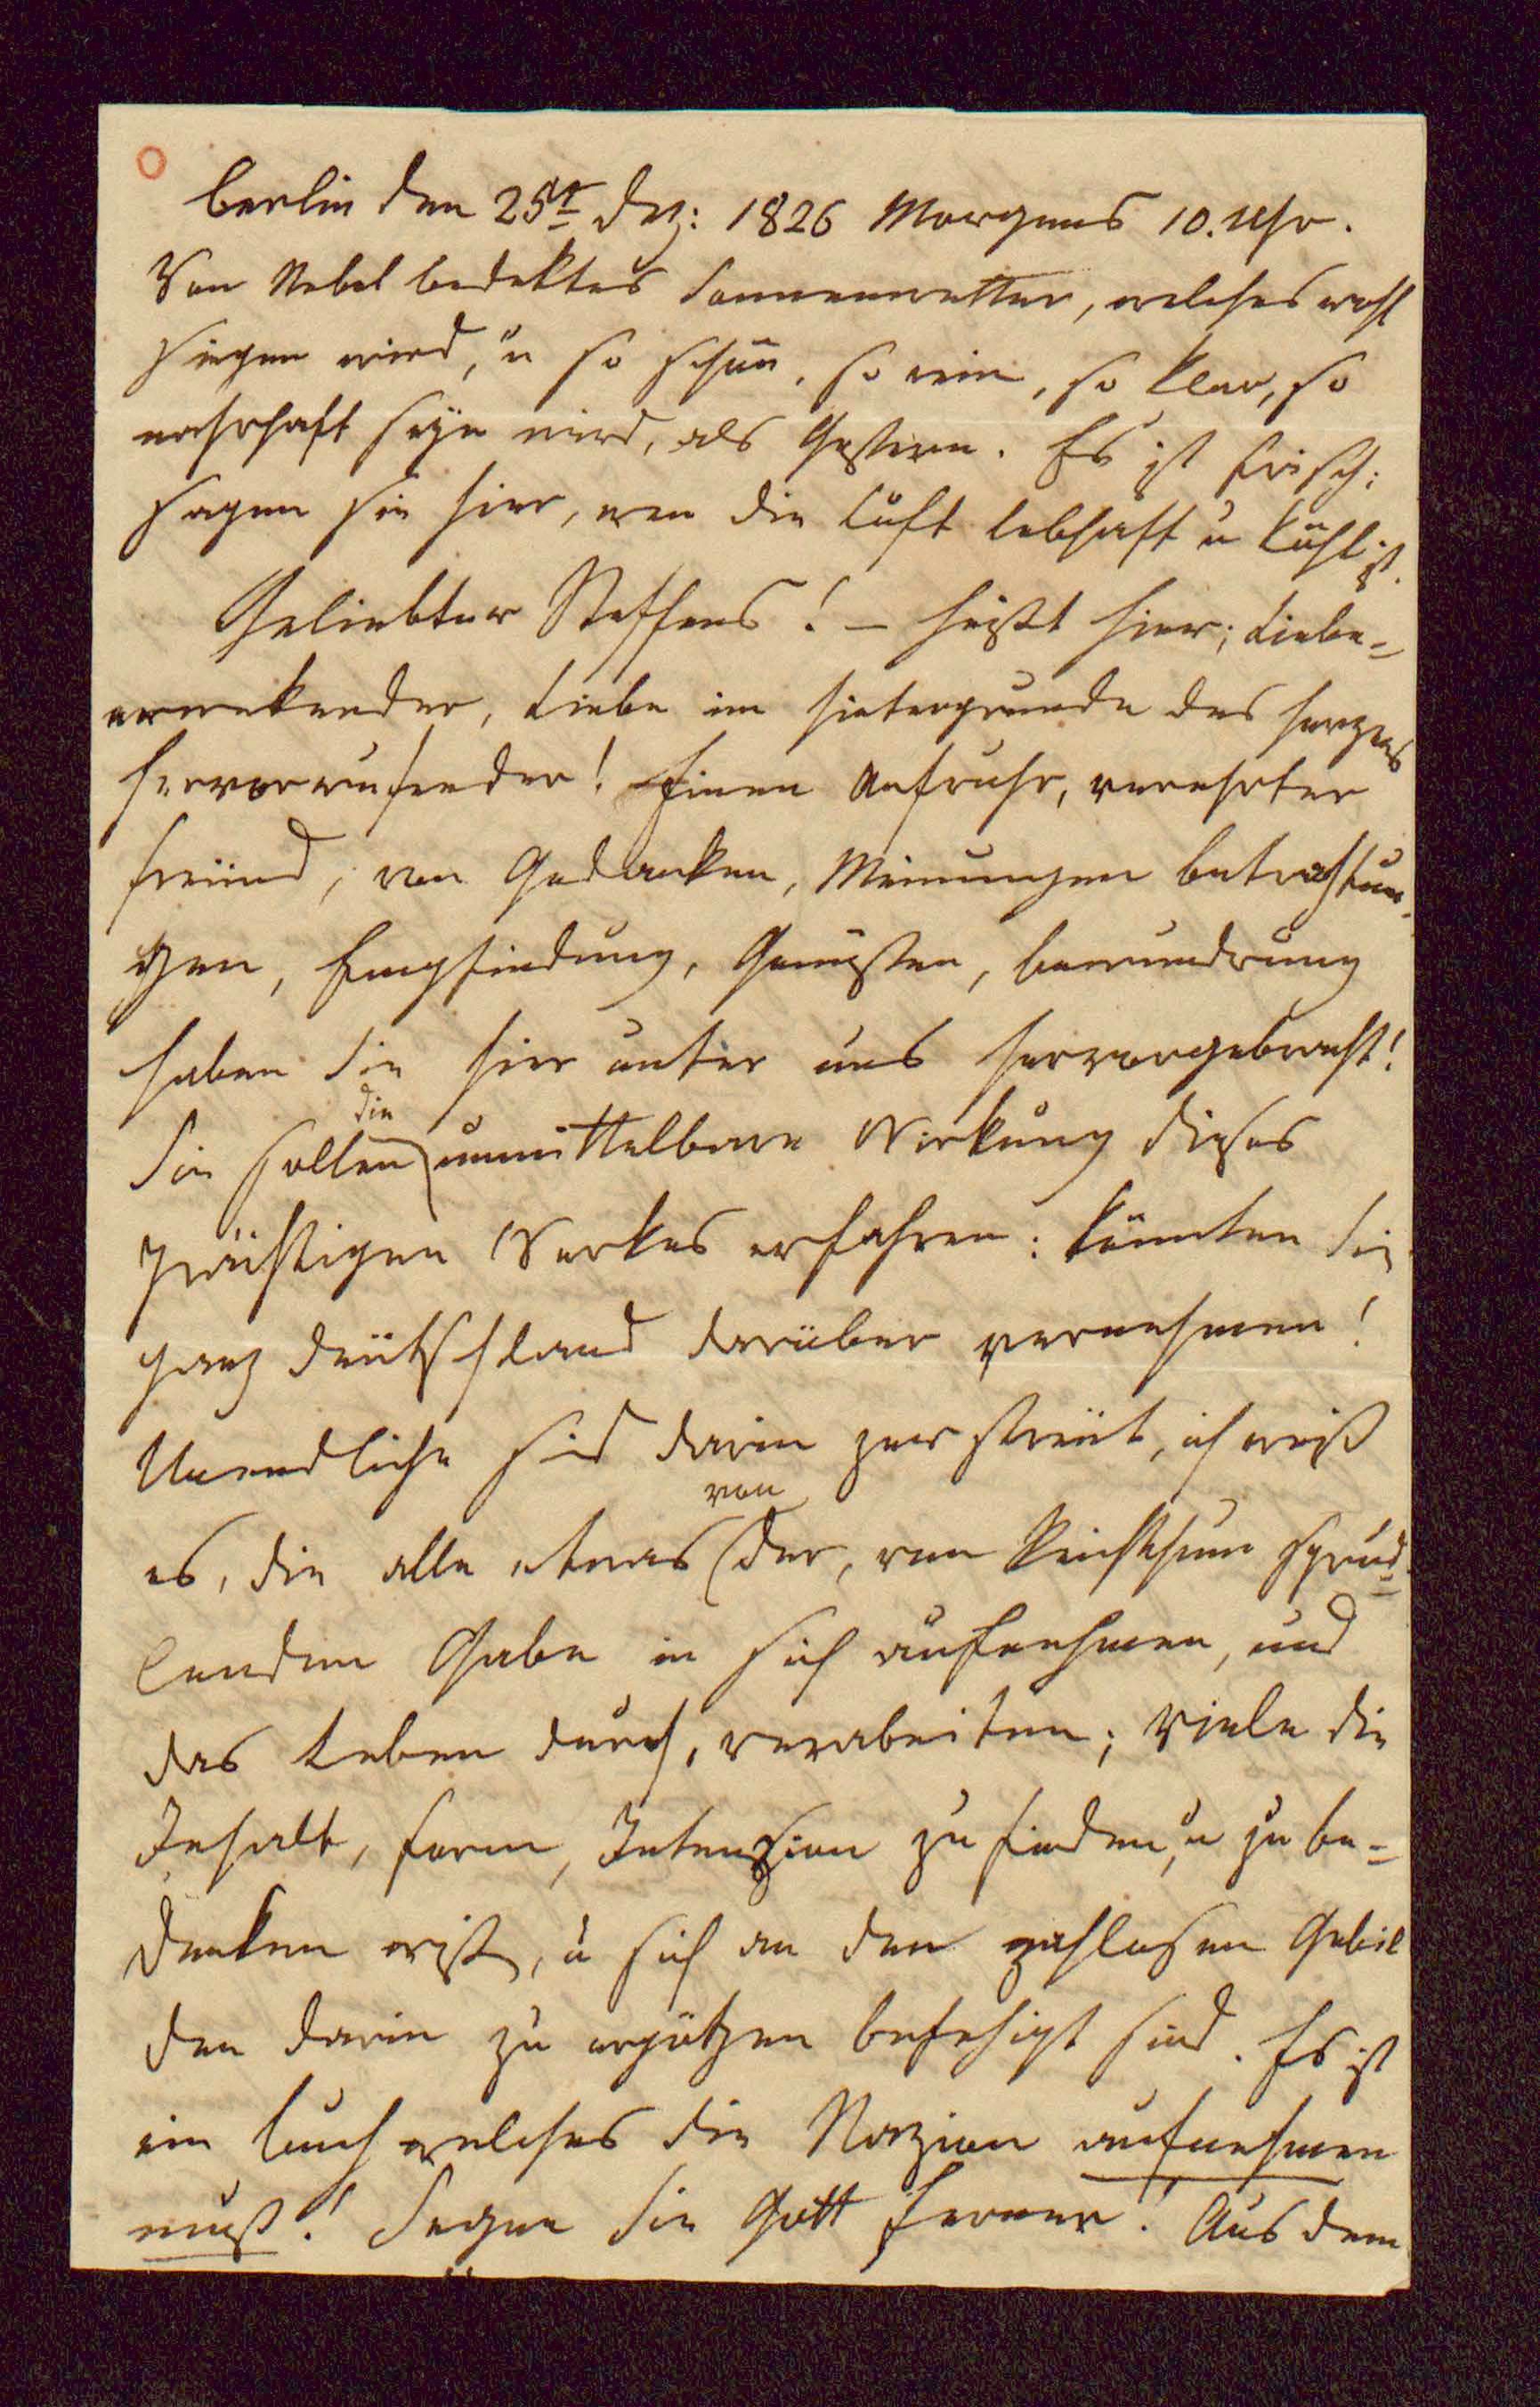 Berlin den 25t Dez: 1826 Morgens 10. Uhr.
Von Nebel bedektes Sonnenwetter, welches wohl
siegen wird, u so schön, so rein, so klar, so
nahrhaft seyn wird, als Gestern. Es ist frisch;
sagen sie hier, wen die Luft lebhaft u kühl ist.
Geliebter Steffens! — heißt hier; Liebe-
erwekender, Liebe im Hintergrunde des Herzens
hervorrufender! Einen Aufruhr, verehrter
Freünd, von Gedanken, Meinungen Betrachtun-
gen, Empfindung, Genüßen, Bewundrung
haben Sie hier unter uns hervorgebracht!
die
Sie sollen unmittelbare Wirkung dieses
Werkes erfahren: könnten Sie
ganz Deütschland darüber vernehmen!
Unendliche sind darin zerstreüt, ich weiß
von
es, die alle etwas der, von Reichthum sprud-
lenden Gabe in sich aufnehmen, und
das Leben durch, verarbeiten; Viele die
Inhalt, Form, Intenzion zu finden, u zu be-
denken wißen, u sich an den zahllosen Gebil
den darin zu ergötzen befehigt sind. Es ist
ein Buch welches die Nazion aufnehmen
muß! Segne Sie Gott ferner! Aus dem